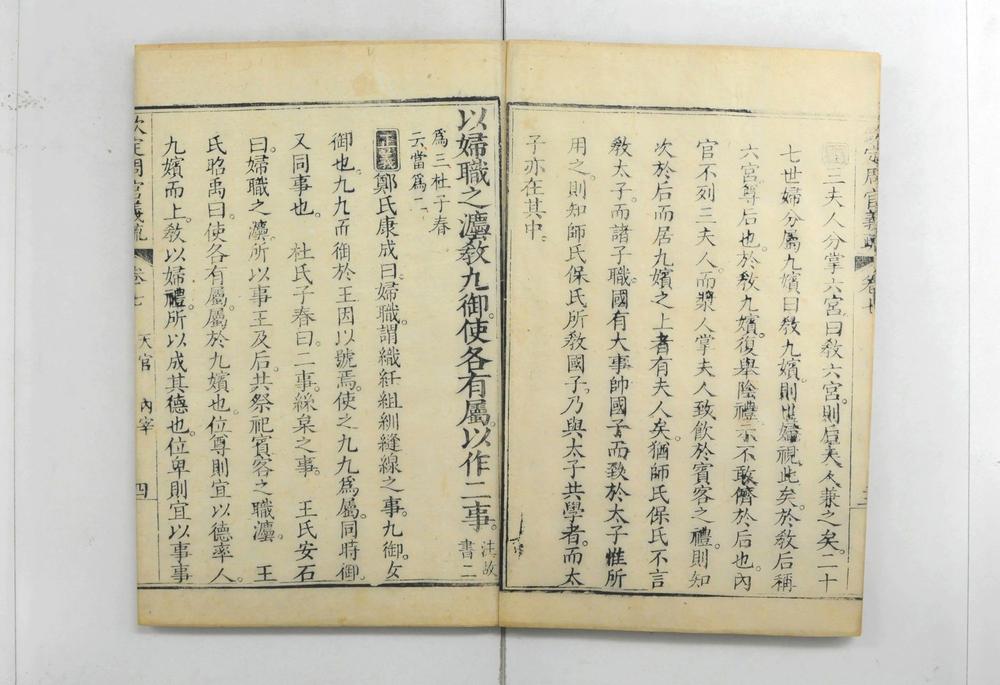 三夫人分掌六宮曰敎六宮則后夫人兼之矣二十
七世婦分屬九嬪曰敎九嬪則世婦視此矣於敎后稱
六宮尊后也於敎九嬪復舉陰禮示不敢儕於后也內
官不列三夫人而漿人掌夫人致飮於賓客之禮則知
次於后而居九嬪之上者有夫人矣猶師氏保氏不言
敎太子而諸子職國有大事帥國子而致於太子惟所
用之則知師氏保氏所敎國子乃與太子共學者而太
子亦在其中
以婦職之灋敎九御使各有屬以作二事注故
書二
爲三杜子春
云當爲二
正義鄭氏康成曰婦職謂織紝組紃縫線之事九御女
御也九九而御於王因以號焉使之九九爲屬同時御
又同事也 杜氏子春曰二事絲枲之事 王氏安石
曰婦職之灋所以事王及后共祭祀賓客之職灋 王
氏昭禹曰使各有屬屬於九嬪也位尊則宜以德率人
九嬪而上敎以婦禮所以成其德也位卑則宜以事事
欽定周官義疏 卷七 天官 內宰 四